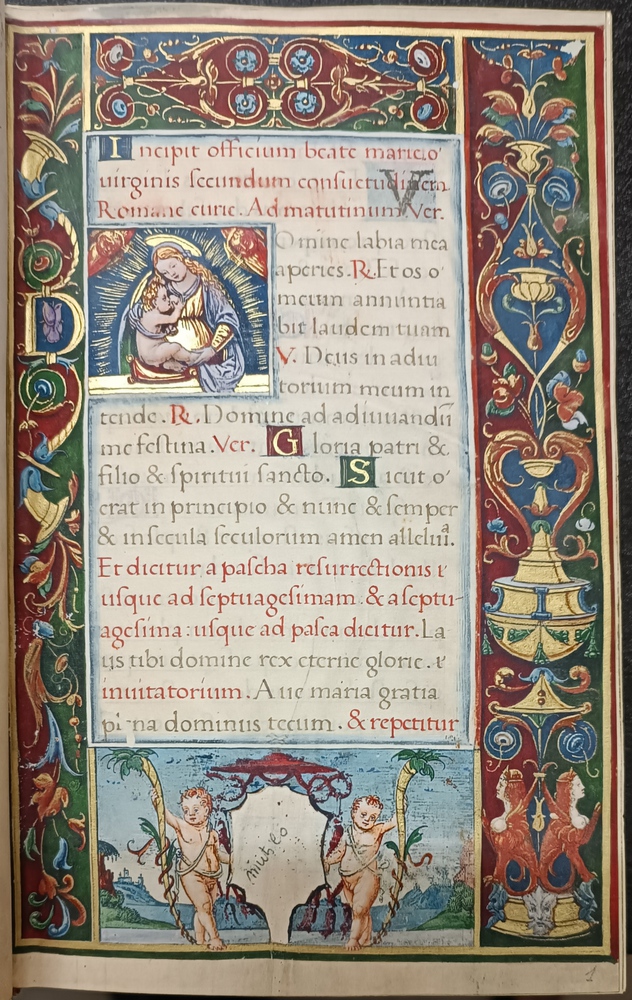 Incipit officium beate marie
uirginis secundum consuetudinem
Romane curie. Ad matutinum Ver.
Domine labia mea
aperies. R. Et os
meum annuntia
bit laudem tuam
V. Deus in adiu
torium meum in
tende. R. Domine ad adiuuandũ
me festina. Ver. Gloria patri &
filio & spiritui sancto. Sicut
erat in principio & nunc & semper
& in secula seculorum amen alleluia.
Et dicitur a pascha resurrectionis
usque ad septuagesimam & a septu-
agesima: usque ad pasca dicitur. La
us tibi domine rex eterne glorie.
inuitatorium. Aue maria gratia
plena dominus tecum. & repetitur
mutilo
1